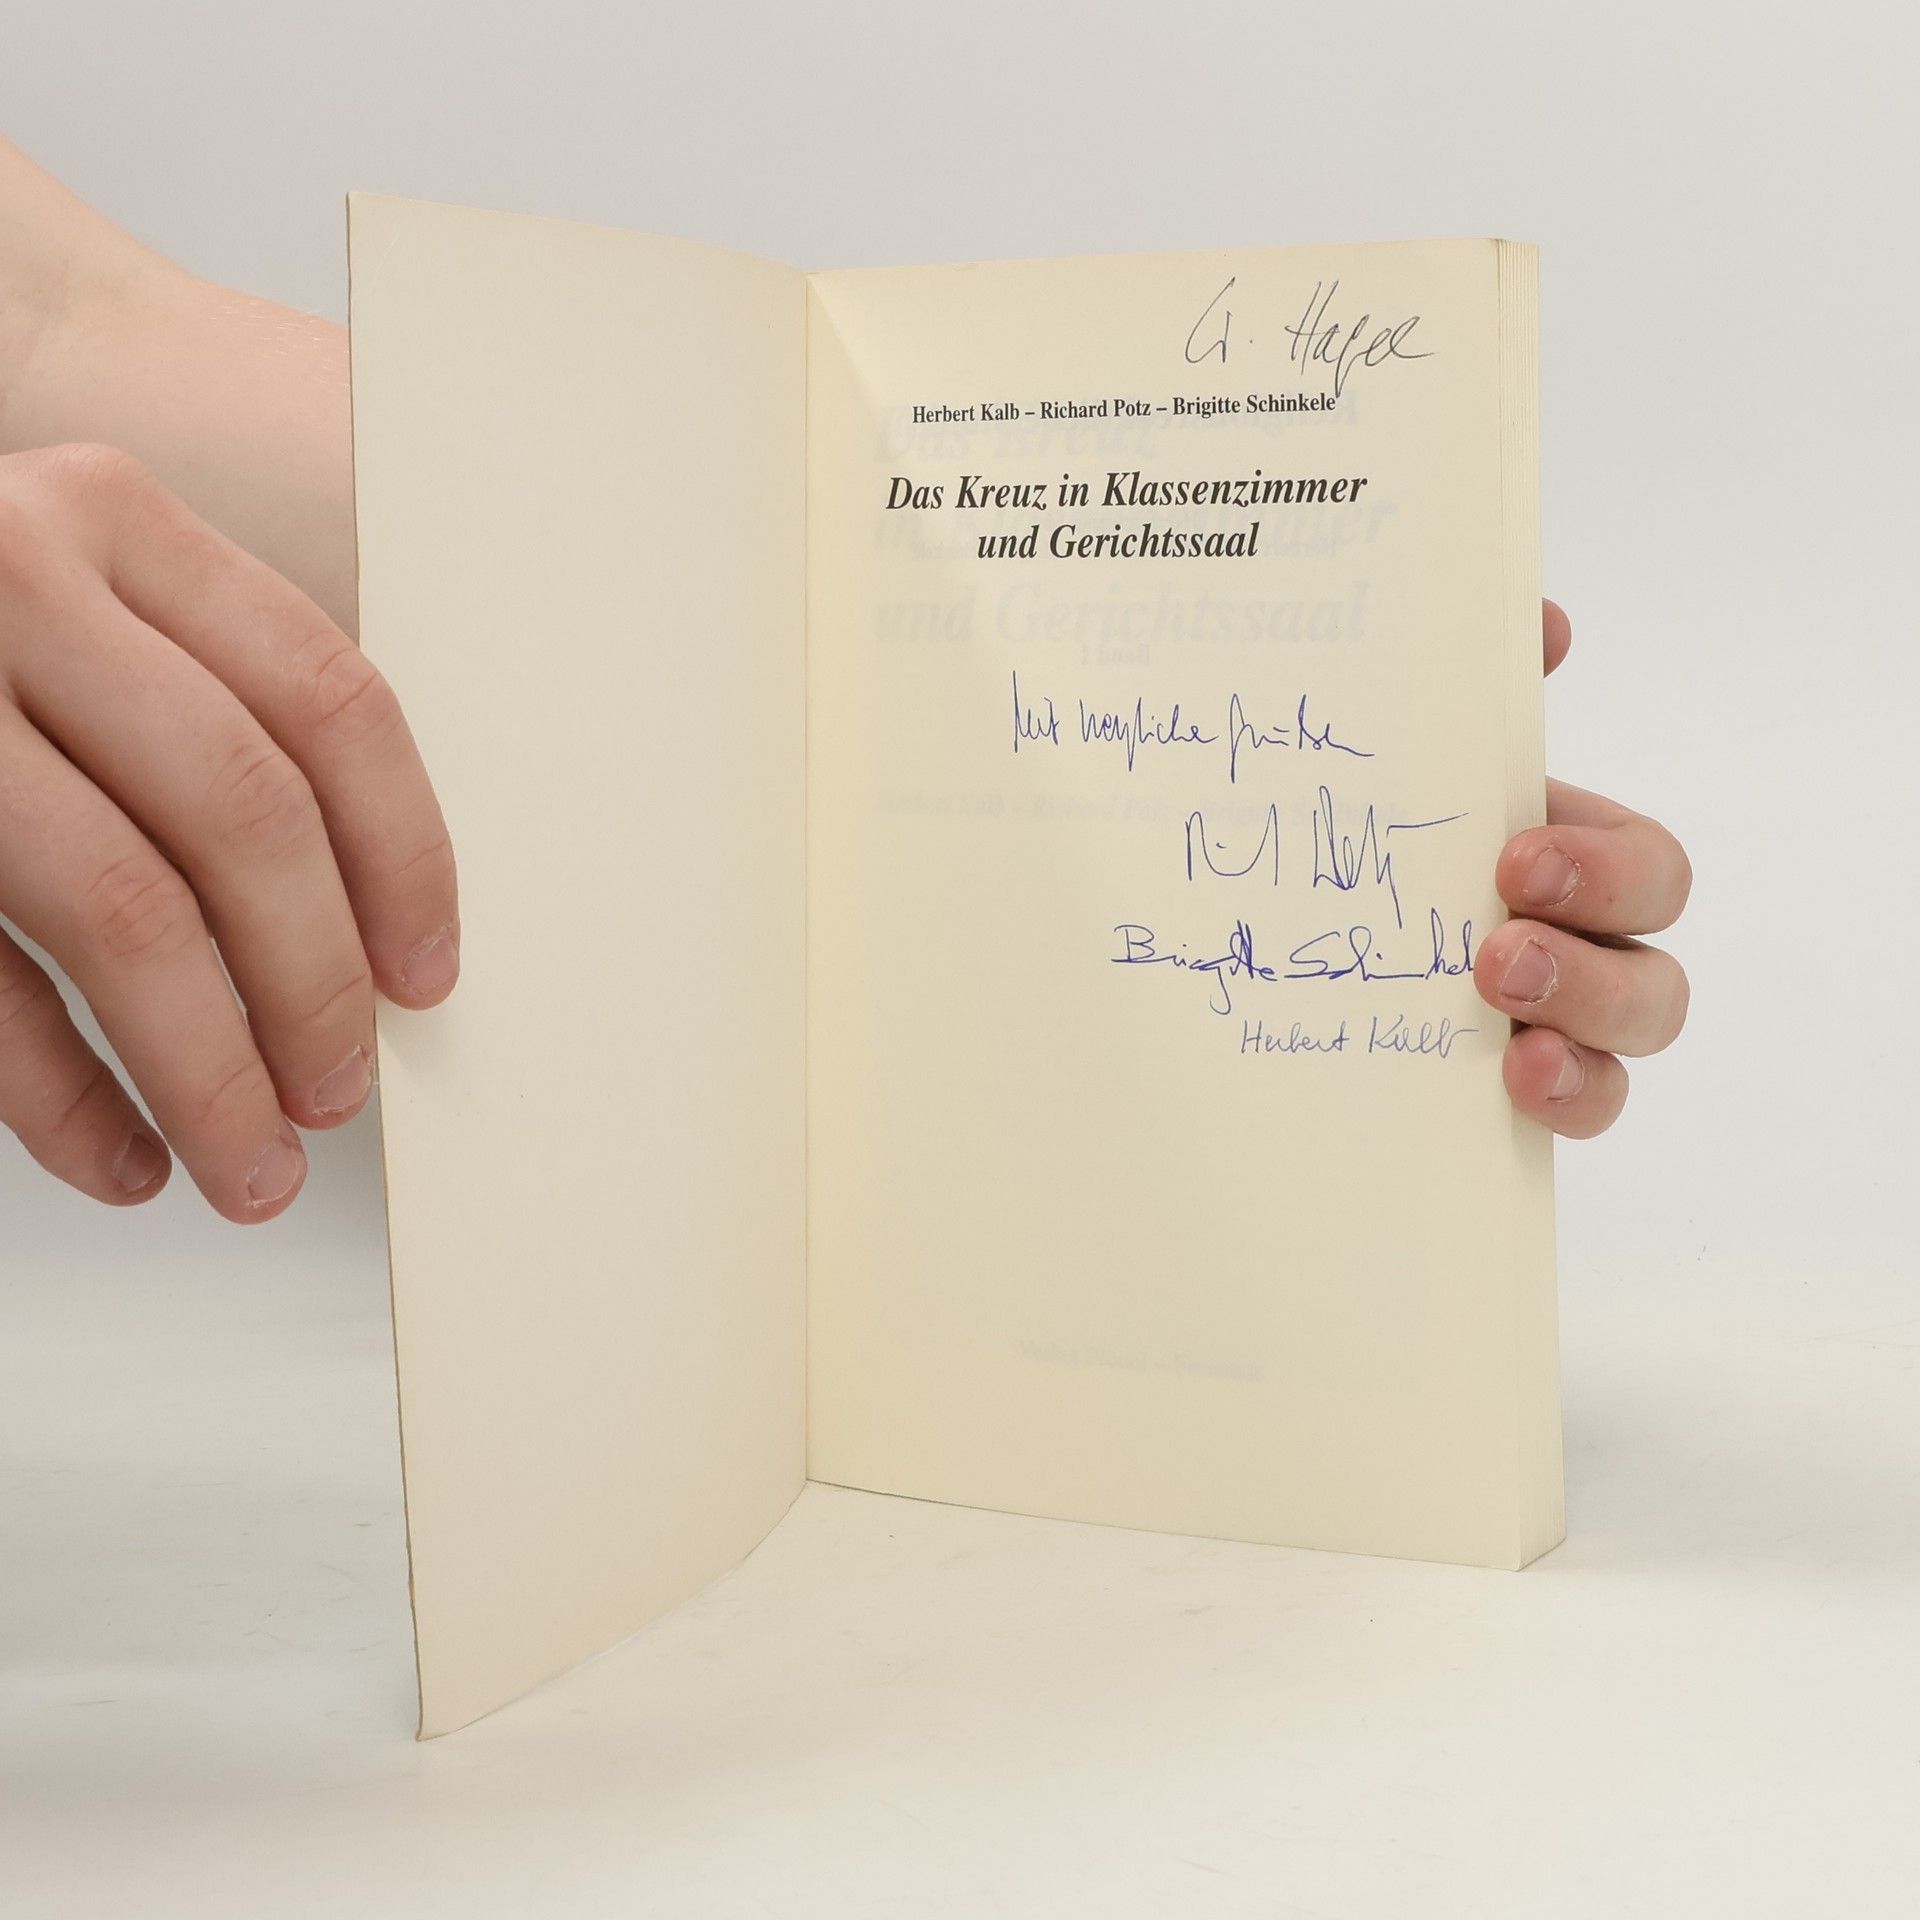 Hagel
Herbert Kalb – Richard Potz – Brigitte Schinkele
Das Kreuz in Klassenzimmer
und Gerichtssaal
Mit herzliche Grüßen
Richard Potz
Brigitte Schinkele
Herbert Kalb